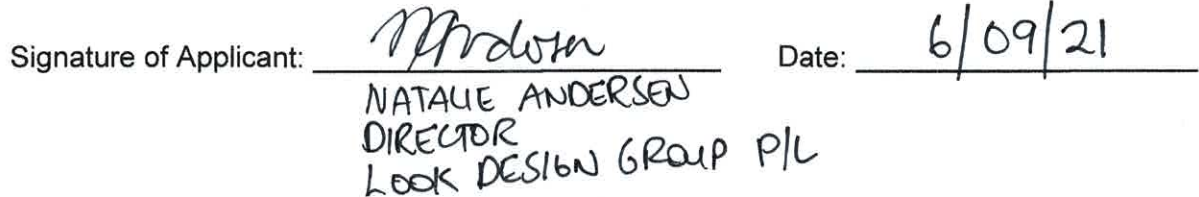 Signature of Applicant: Date: 6/09/21
NATALIE ANDERSEN
DIRECTOR
LOOK DESIGN GROUP P/L